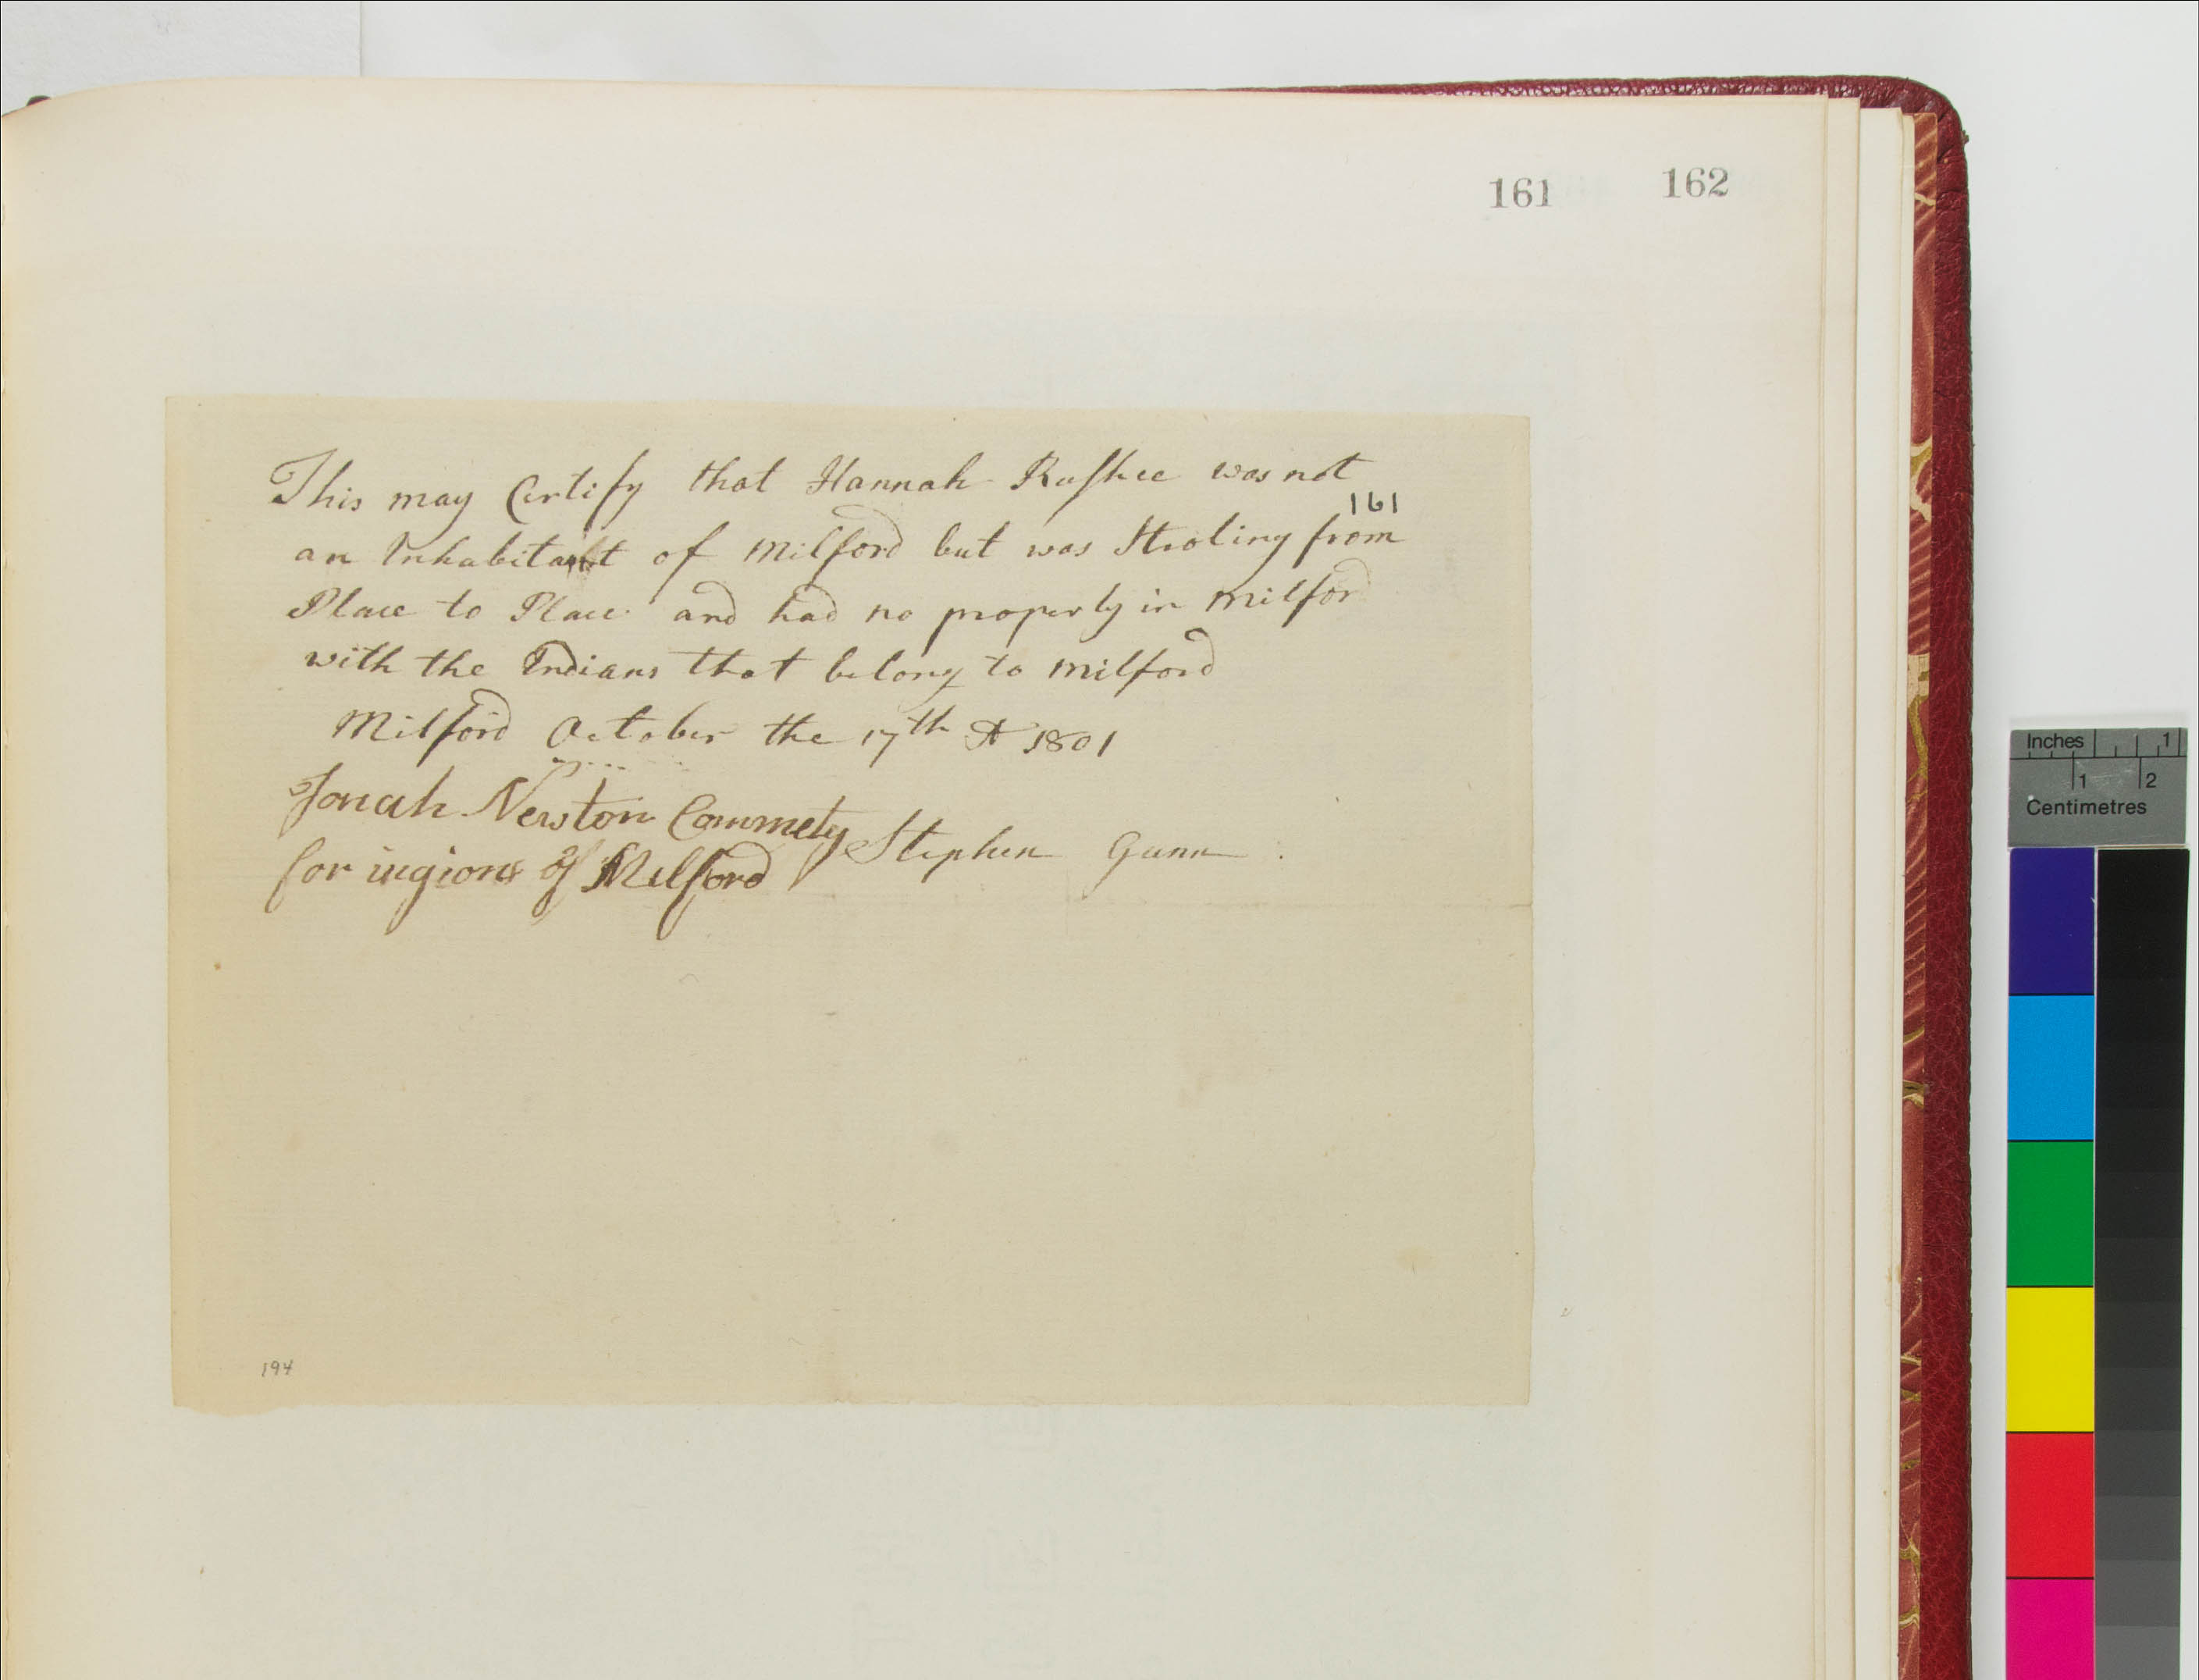 161 162
This may Certify that Hannah Rushee was not
161
an Inhabitant of Milford but was Stroling from
Place to Place and had no property in Milford
with the Indians that belong to Milford
Milford October the 17th A 1801
Jonah Newton Commety Stephen Gunn
for ingions of Milford
194
Inches 1
1 2
Centimetres